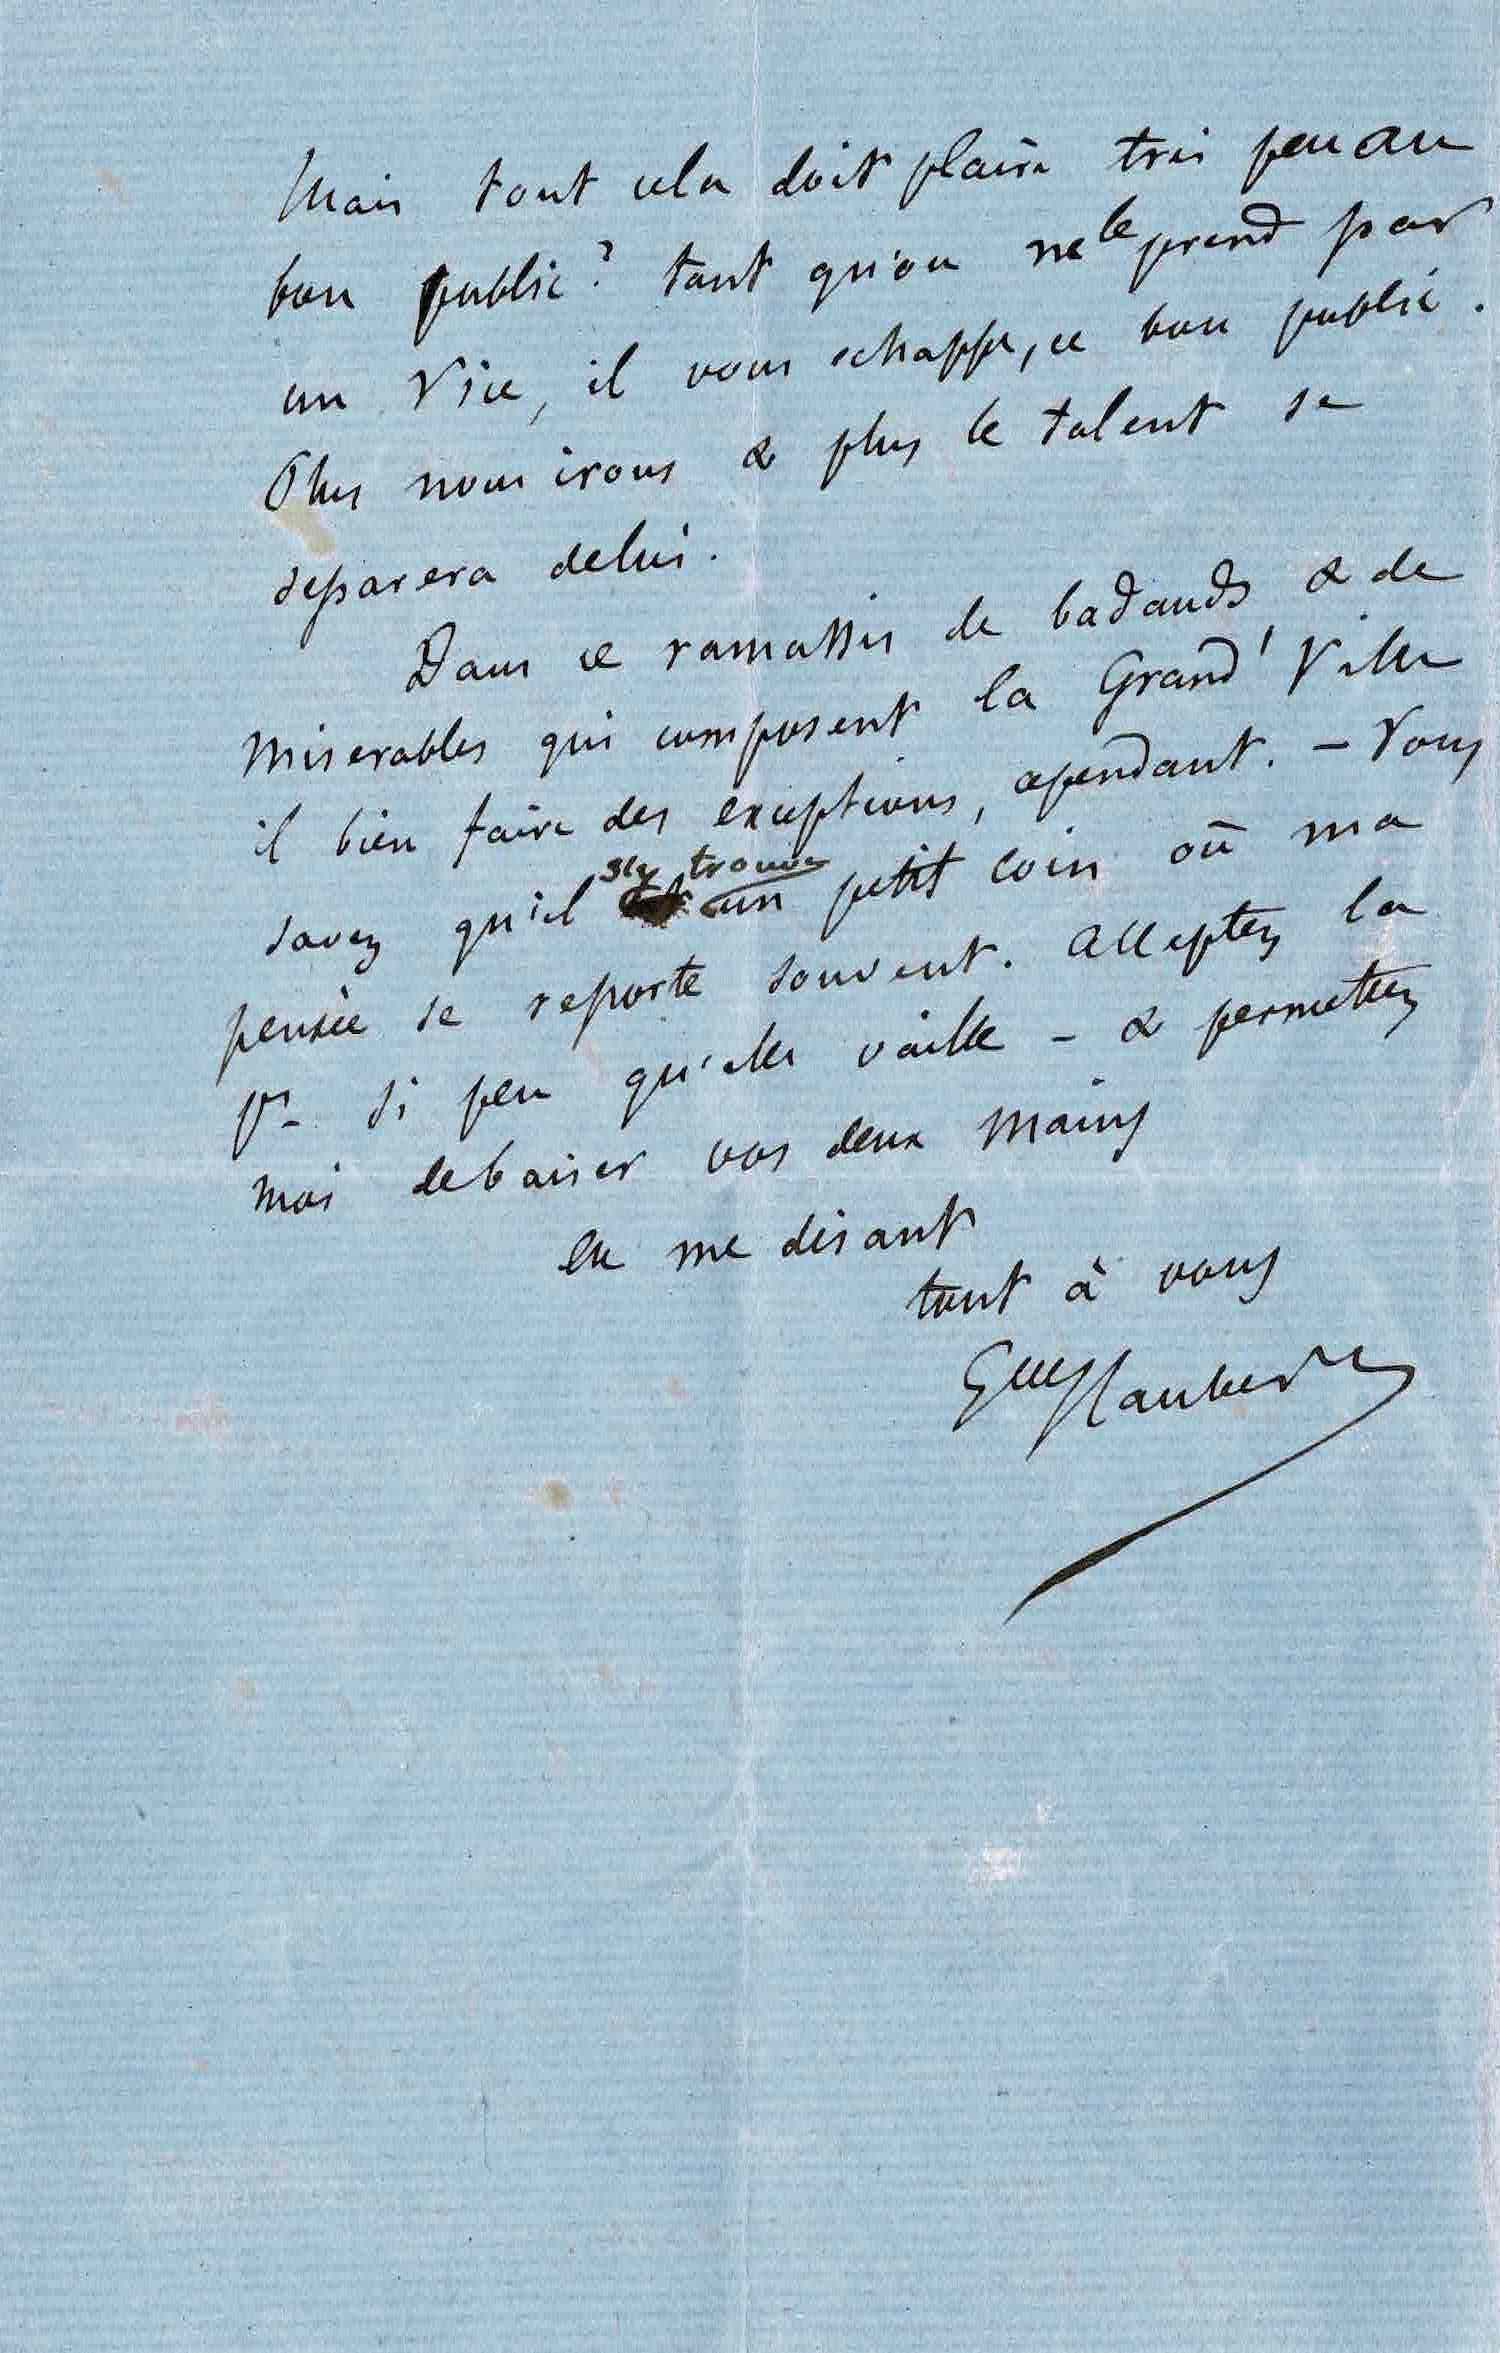 Mais tout cela doit plaire très peu au
bon public? tant qu'on ne le prend par
un Vice, il vous echappe, ce bon public.
Plus nous irons & plus le talent se
separera de lui.
Dans ce ramassis de badauds & de
miserables qui composent la Grand' Ville
il bien faire des exceptions, cependant. – Vous
savez qu'il s'y trouve un petit coin où ma
pensée se reporte souvent. acceptez la
pr si peu qu'elle vaille – & permettez
moi de baiser vos deux mains
en me disant
tout à vous
Gve Flaubert